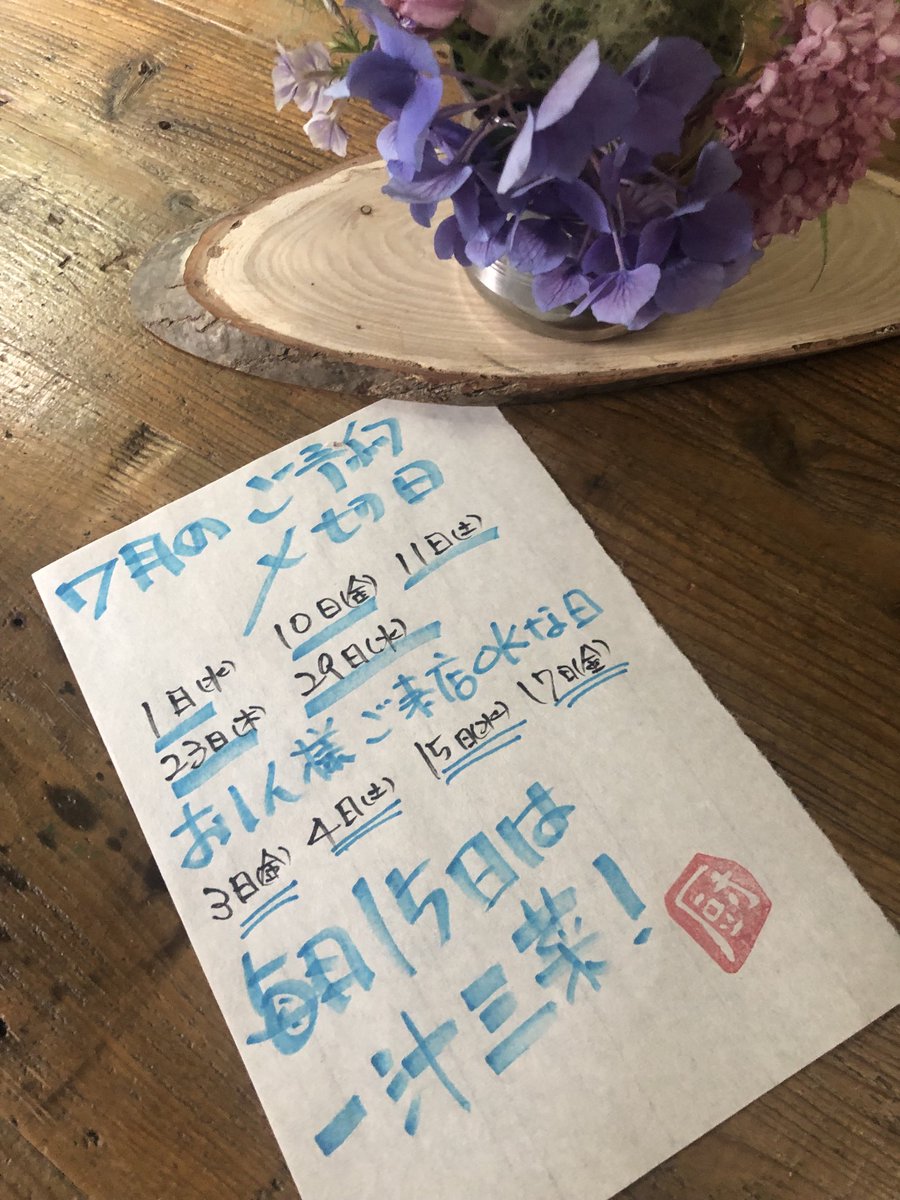 7月のご予約
〆切日
1日(水) 10日(金) 11日(土)
23日(木) 29日(水)
お1人様ご来店OKな日
3日(金) 4日(土) 15日(水) 17日(金)
毎月15日は
一汁三菜!